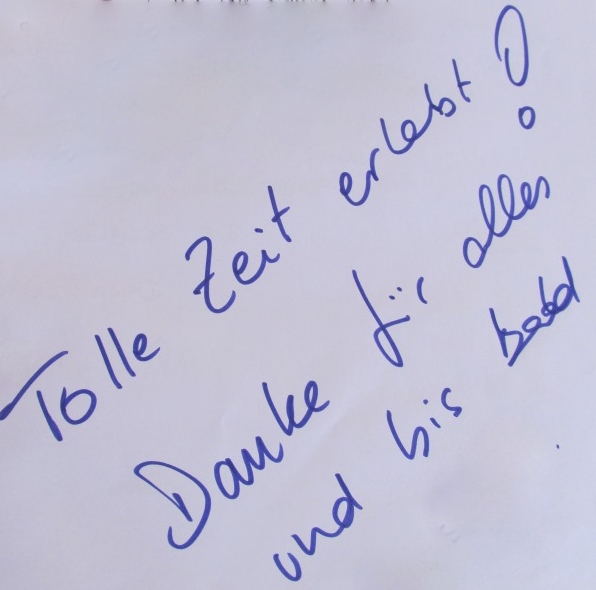 Tolle Zeit erlebt!
Danke für alles
und bis bald